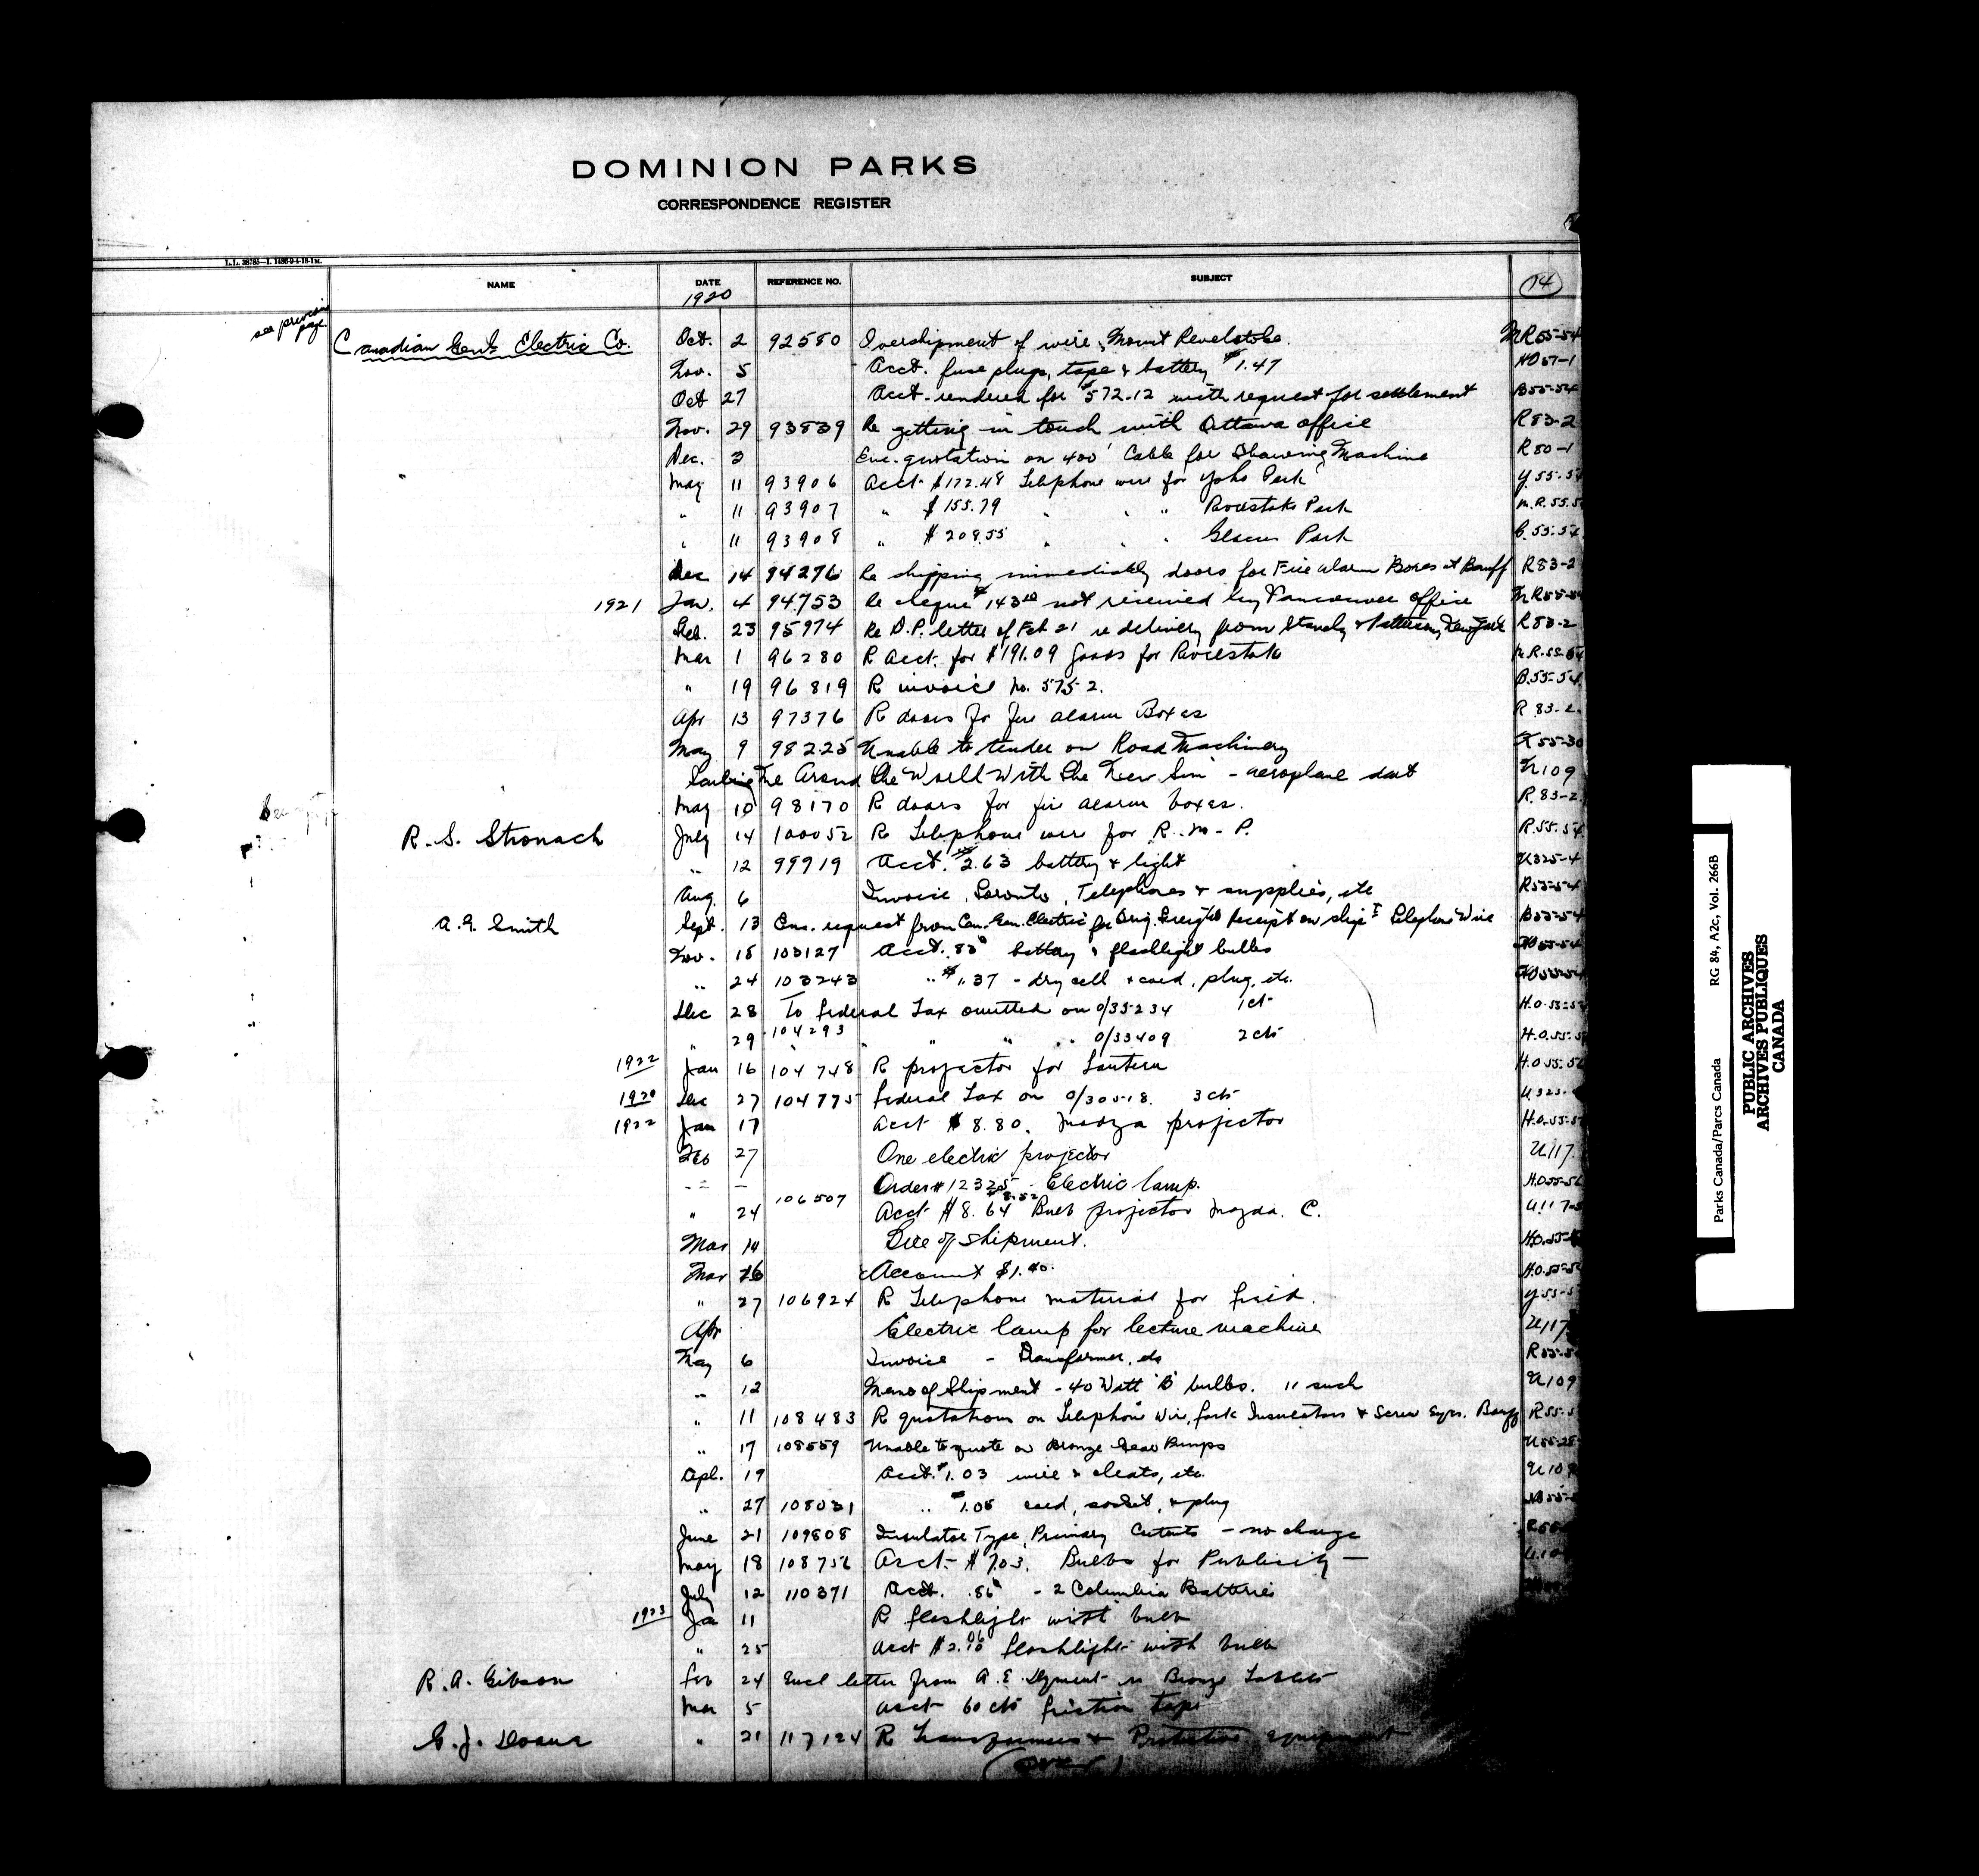 DOMINION PARKS
CORRESPONDENCE REGISTER
L.L. 38785—I. 1486-9-4-18-1M.
NAME DATE REFERENCE NO. SUBJECT 14
1920
see previous page.
Canadian Gen'l Electric Co. Oct. 2 92580 Overshipment of wire, Mount Revelstoke. MR55-54
Nov. 5 Acct. fuse plugs, tape & battery $1.47 HO57-1
Oct 27 Acct. rendered for $572.12 with request for settlement B55-54
Nov. 29 93839 Re getting in touch with Ottawa office R83-2
Dec. 3 Enc. quotation on 400' Cable for Thawing Machine R80-1
May 11 93906 Acct $172.48 Telephone wire for Yoho Park Y.55.54
" 11 93907 " $155.79 " " Revelstoke Park M.R.55.5
" 11 93908 " $208.55 " " Glacier Park G.55-54
Dec 14 94276 Re shipping immediately doors for Fire alarm Boxes at Banff R83-2
1921 Jan. 4 94753 Re cheque $143 not received by Vancouver office MR55-54
Feb. 23 95974 Re D.P. letter of Feb 21 re delivery from Stanley & Patterson, New York R83-2
Mar 1 96280 R acct. for $191.09 goods for Revelstoke M.R.55-54
" 19 96819 R invoice No. 5752. B.55-54
Apr 13 97376 R doors for fire alarm Boxes R 83-2
May 9 98225 Unable to tender on Road Machinery 55-30
Around the World With the New Sun - aeroplane U109
May 10 98170 R doors for fire alarm boxes. R.83-2
R. S. Stronach July 14 100052 R Telephone wire for R.M.P. R.55.54
" 12 99919 Acct. $2.63 battery & light U325-4
Aug. 6 Invoice, Toronto, Telephones & supplies, etc R55-54
A. G. Smith Sept. 13 Enc. request from Can. Gen. Electric for Orig. Freight Receipt on ship't Telephone Wire B55-54
Nov. 18 103127 Acct. 83¢ battery & flashlight bulbs HO55-54
" 24 103243 " $1.37 - dry cell & cord, plug, etc. HO55-54
Dec 28 To Federal Tax omitted on O/35234 1ct H.O.55-5
" 29 104293 " " " O/33409 2cts H.O.55-5
1922 Jan 16 104748 R projector for Lantern H.O.55-5
1920 Dec 27 104775 Federal Tax on O/30518. 3cts U.325-
1922 Jan 17 Acct $8.80. Mazda projector H.O.55-5
Feb 27 One electric projector U117.
- Order # 12325 - Electric lamp. HO55-5
" 24 106507 Acct $8.64 $8.52 Bulb projector Mazda. C. U117-
Mar 14 Date of Shipment. H.O.55-
Mar 26 Account $1.40. H.O.55-5
" 27 106924 R Telephone material for field. Y55-5
Apr Electric lamp for lecture machine U117
May 6 Invoice - Transformer, etc R55-5
" 12 Memo of Shipment - 40 Watt 'B' bulbs. 11 such U109
" 11 108483 R quotations on Telephone Wire, fork Insulators & Screw Eyes. Banff R55-5
" 17 108559 Unable to quote on Bronze Gear Pumps U55-28
Apl. 19 Acct. $1.03 wire & cleats, etc. U109
" 27 108031 " $1.05 cord, socket, & plug
June 21 109808 Insulator Type, Primary Cutouts - no charge R55
May 18 108756 Acct - $7.03. Bulbs for Publicity — U.10
July 12 110371 Acct. .86¢ - 2 Columbia Batteries
1923 Ja 11 R flashlight with bulb
" 25 Acct $2. flashlight with bulb
R. A. Gibson Feb 24 Encl letter from A. E. Dyment re Bronze Tablets
Mar 5 Acct 60 cts friction tape
" 21 117124 R Transformers & Protective equipment
(over)
Parks Canada/Parcs Canada RG 84, A2c, Vol. 266B
PUBLIC ARCHIVES
ARCHIVES PUBLIQUES
CANADA